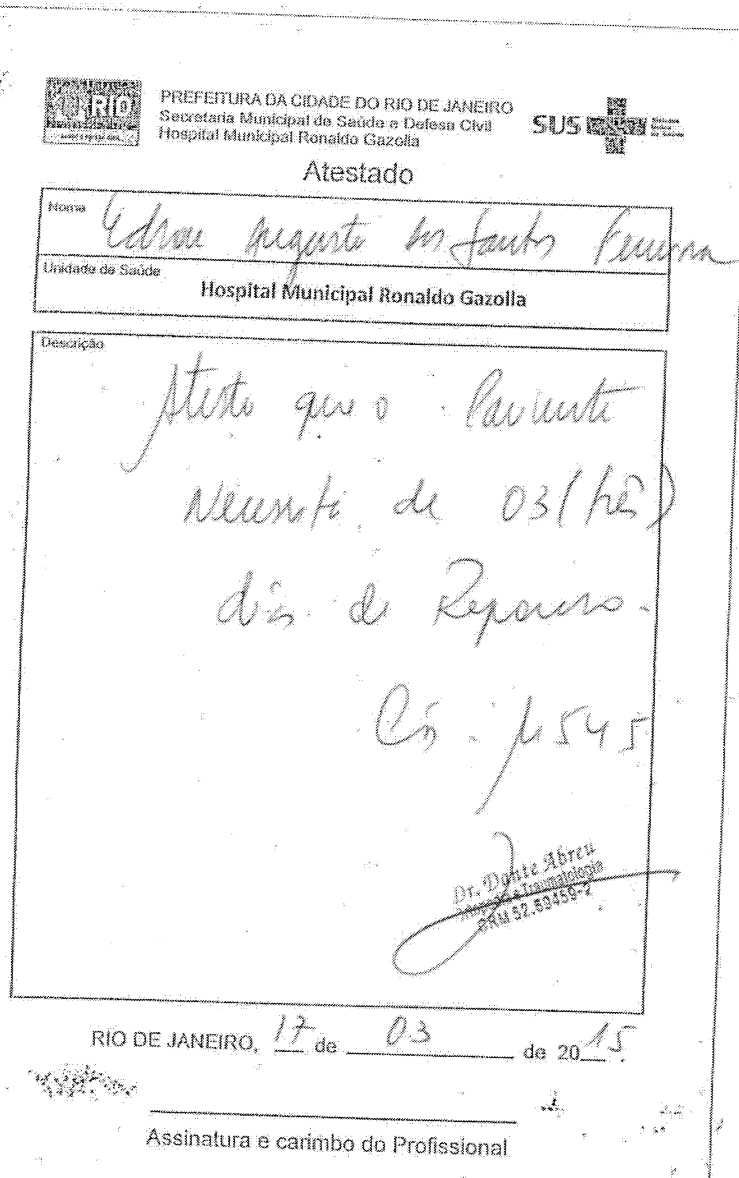 RIO
PREFEITURA DA CIDADE DO RIO DE JANEIRO
Secretaria Municipal de Saúde e Defesa Civil
Hospital Municipal Ronaldo Gazolla
SUS
Atestado
Nome
Augusto dos Santos Ferreira
Unidade de Saúde
Hospital Municipal Ronaldo Gazolla
Descrição
Atesto que o Paciente
Necessita de 03 (três)
dias de Repouso.
M545
Dr. Dante Abreu
Ortopedia e Traumatologia
CRM 52.59459-2
RIO DE JANEIRO, 17 de 03 de 2015
Assinatura e carimbo do Profissional